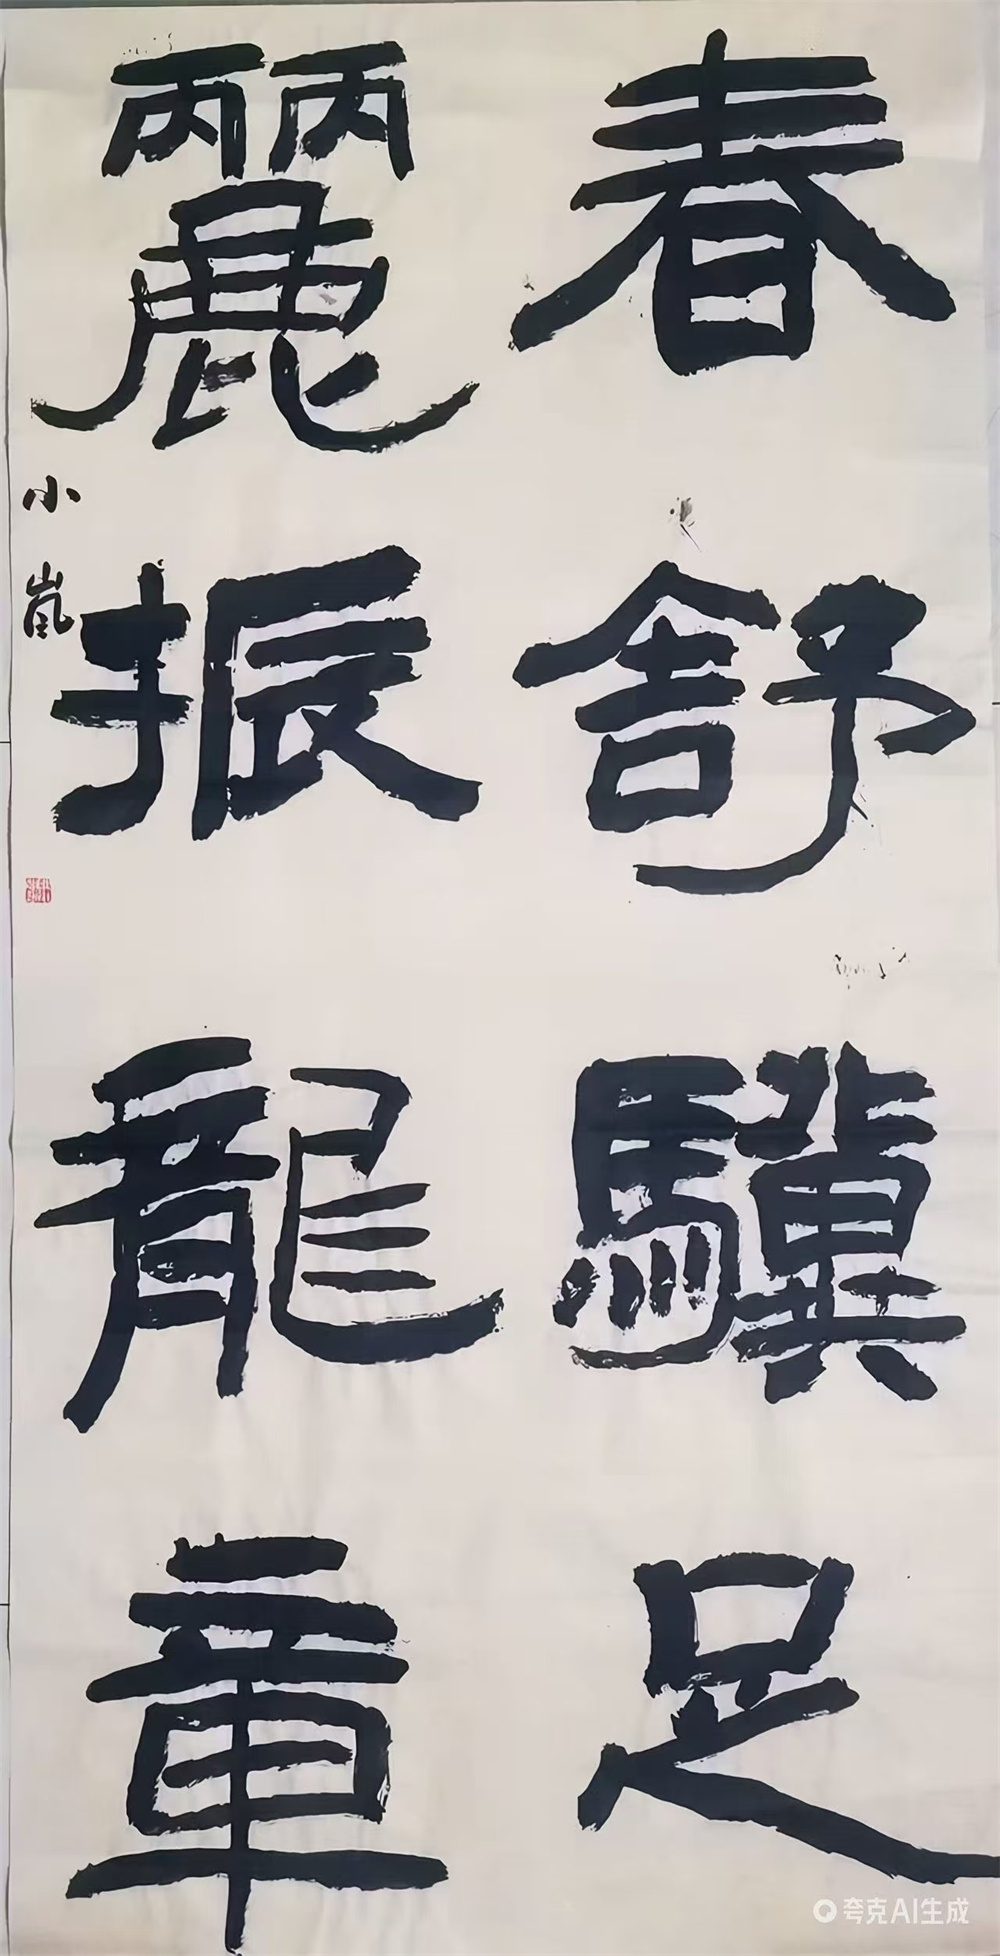 春舒驥足
麗振龍章
小嵐
夸克AI生成